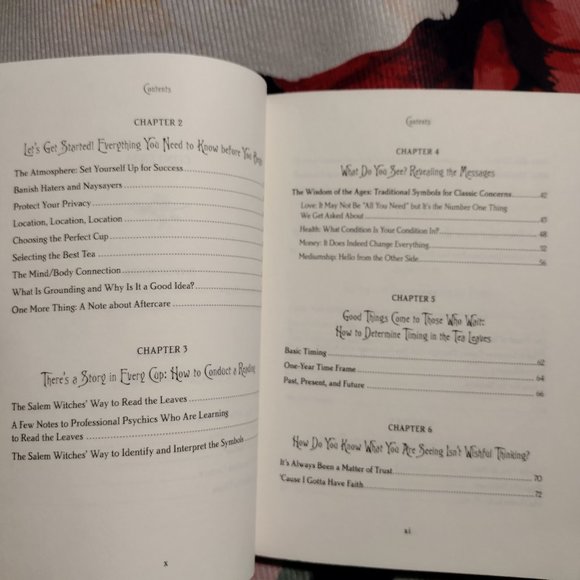 Contents
CHAPTER 2
Let's Get Started! Everything You Need to Know before You Begin
The Atmosphere: Set Yourself Up for Success
Banish Haters and Naysayers
Protect Your Privacy
Location, Location, Location
Choosing the Perfect Cup
Selecting the Best Tea
The Mind/Body Connection
What Is Grounding and Why Is It a Good Idea?
One More Thing: A Note about Aftercare
CHAPTER 3
There's a Story in Every Cup: How to Conduct a Reading
The Salem Witches' Way to Read the Leaves
A Few Notes to Professional Psychics Who Are Learning
to Read the Leaves
The Salem Witches' Way to Identify and Interpret the Symbols
x
Contents
CHAPTER 4
What Do You See? Revealing the Messages
The Wisdom of the Ages: Traditional Symbols for Classic Concerns 42
Love: It May Not Be "All You Need" but It's the Number One Thing
We Get Asked About 45
Health: What Condition Is Your Condition In? 48
Money: It Does Indeed Change Everything 52
Mediumship: Hello from the Other Side 56
CHAPTER 5
Good Things Come to Those Who Wait:
How to Determine Timing in the Tea Leaves
Basic Timing 62
One-Year Time Frame 64
Past, Present, and Future 66
CHAPTER 6
How Do You Know What You Are Seeing Isn't Wishful Thinking?
It's Always Been a Matter of Trust 70
'Cause I Gotta Have Faith 72
xi